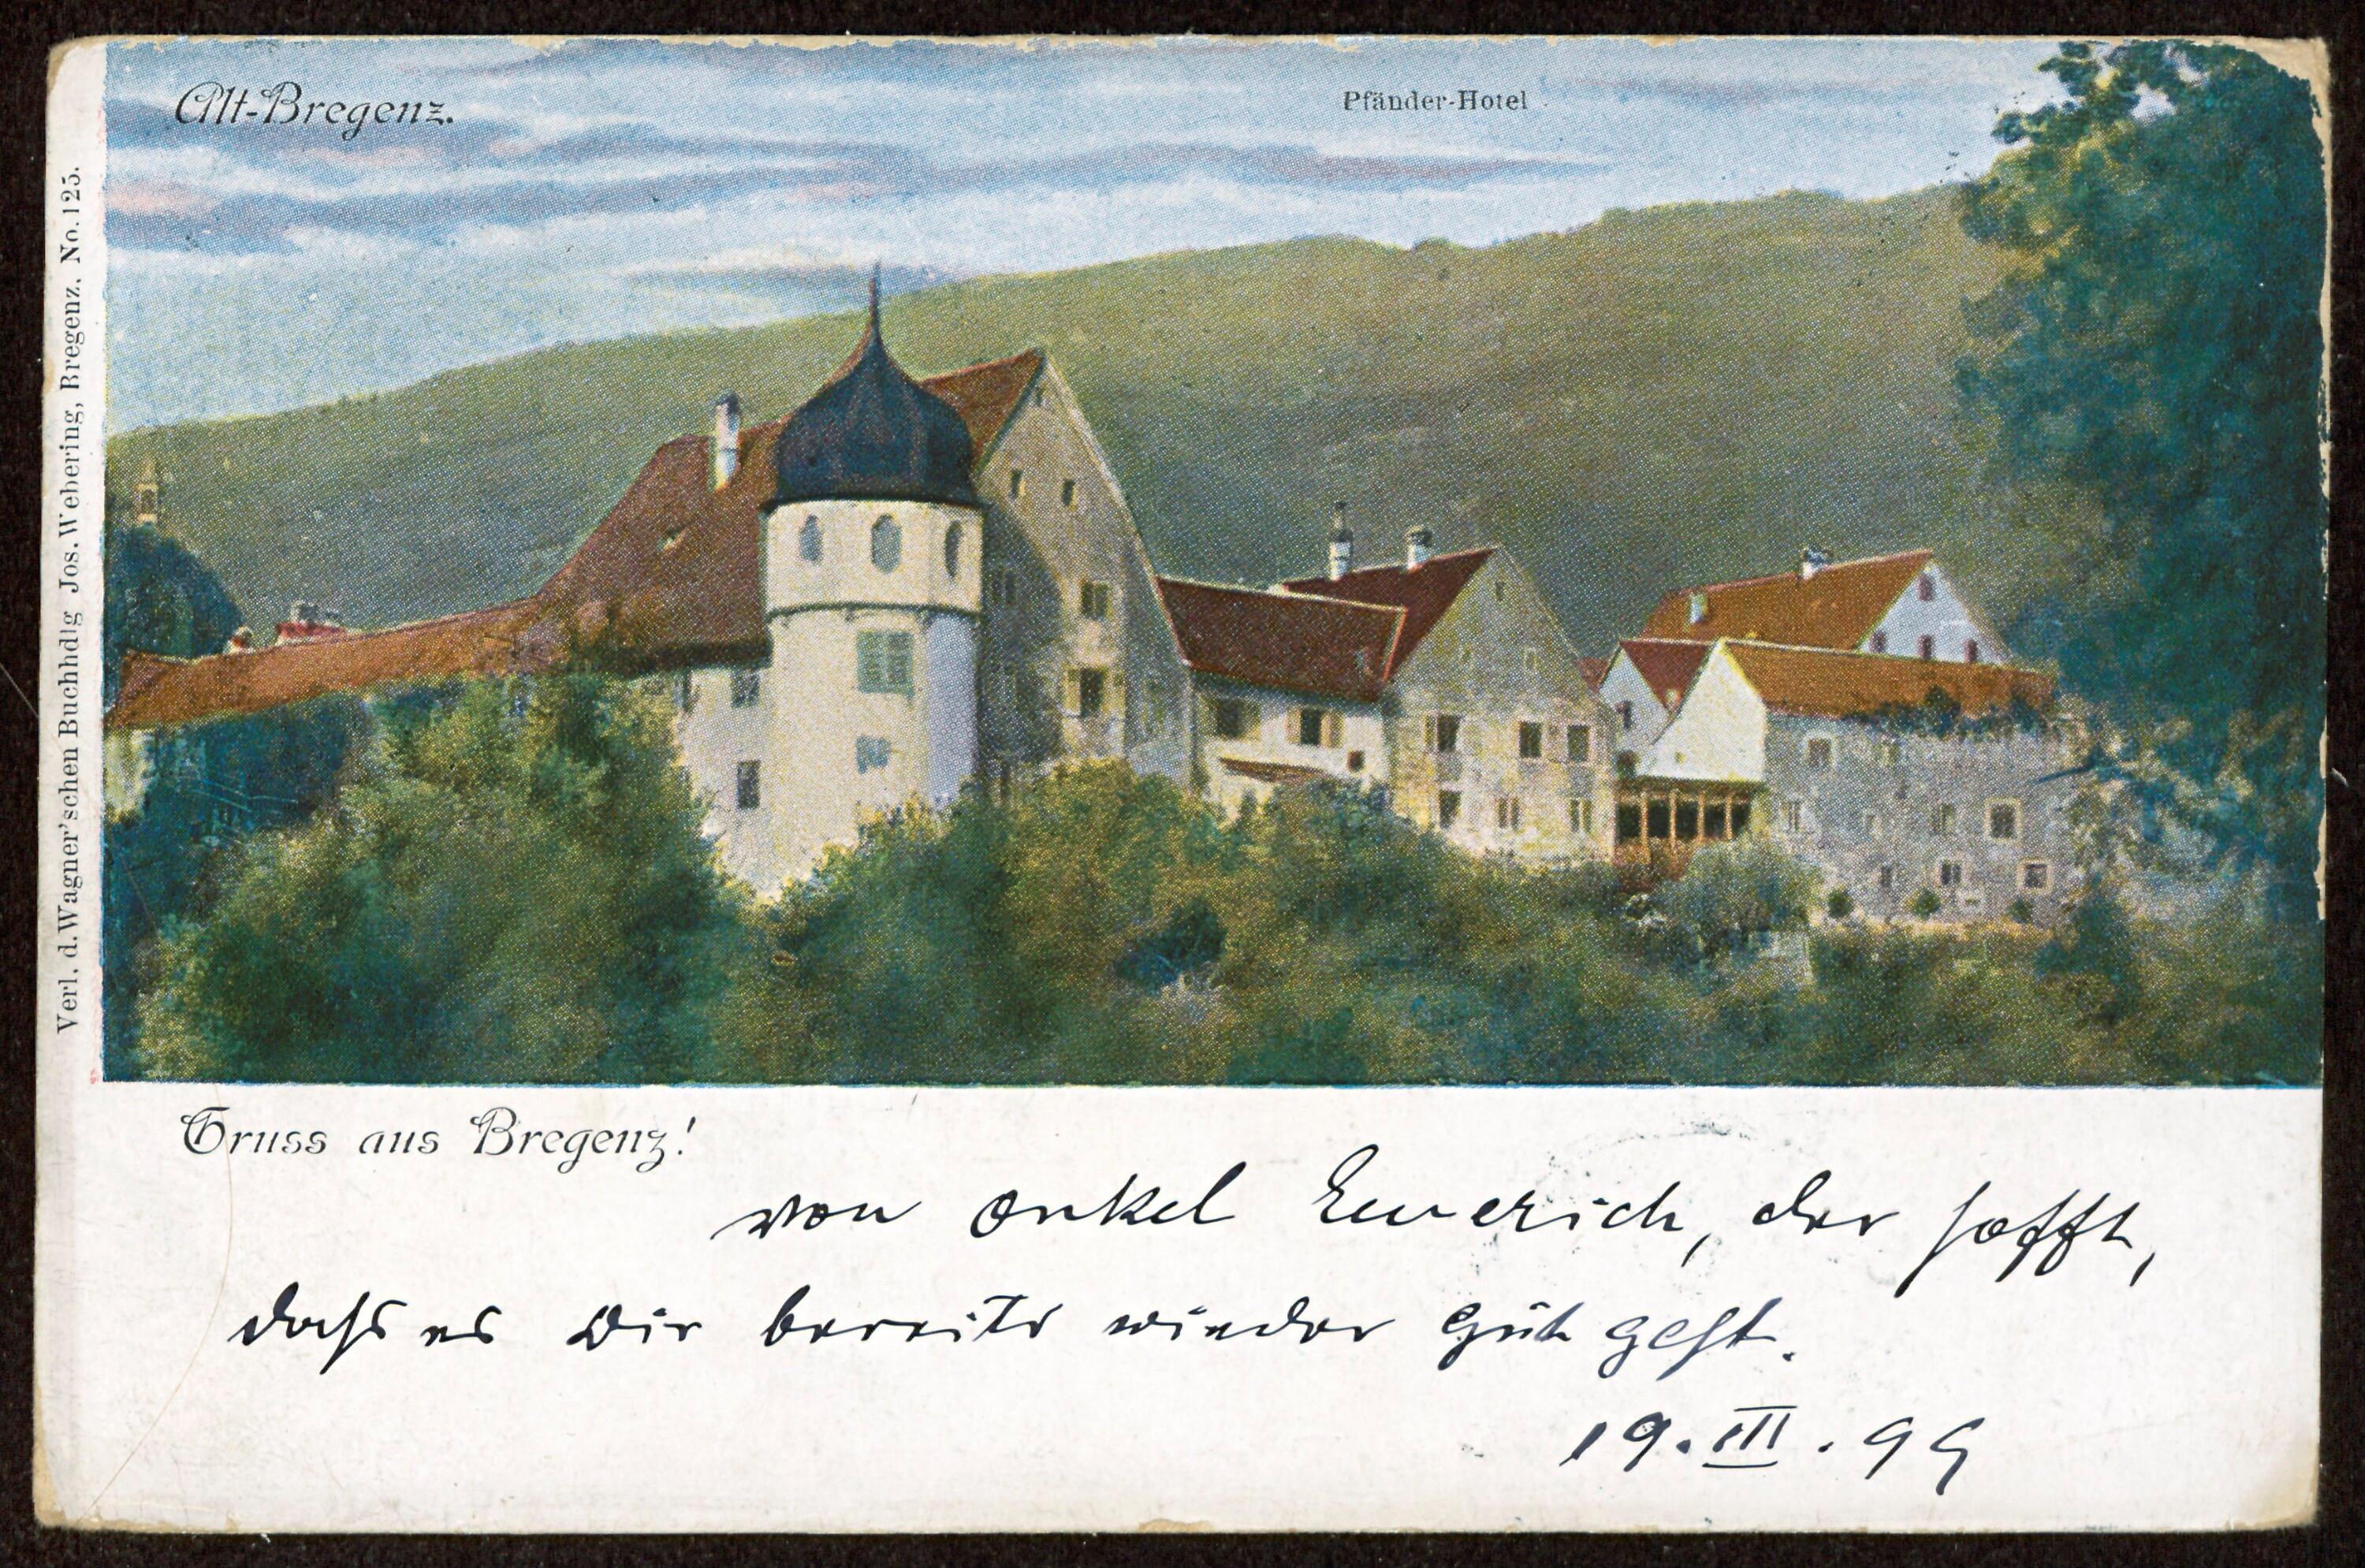 Alt-Bregenz.
Pfänder-Hotel
Verl. d. Wagner'schen Buchhdlg Jos. Webering, Bregenz. No. 125.
Gruss aus Bregenz!
von Onkel Emerich, der hofft,
daſs es Dir bereits wieder gut geht.
19. III. 99